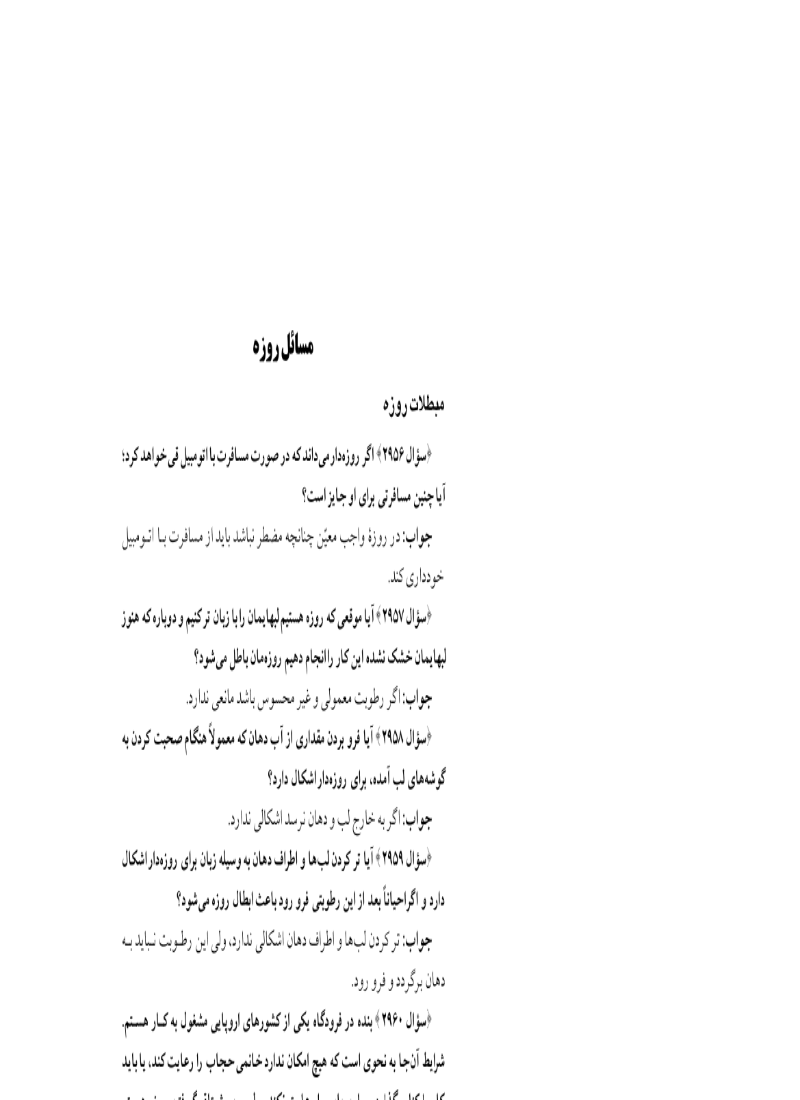 مسائل روزه
مبطلات روزه
﴿سؤال ۲۹۵۶﴾ اگر روزه‌دار می‌داند که در صورت مسافرت با اتومبیل قی خواهد کرد؛
آیا چنین مسافرتی برای او جایز است؟
جواب: در روزهٔ واجب معیّن چنانچه مضطر نباشد باید از مسافرت بـا اتـومبیل
خودداری کند.
﴿سؤال ۲۹۵۷﴾ آیا موقعی که روزه هستیم لبهایمان را با زبان تر کنیم و دوباره که هنوز
لبهایمان خشک نشده این کار را انجام دهیم روزه‌مان باطل می‌شود؟
جواب: اگر رطوبت معمولی و غیر محسوس باشد مانعی ندارد.
﴿سؤال ۲۹۵۸﴾ آیا فرو بردن مقداری از آب دهان که معمولاً هنگام صحبت کردن به
گوشه‌های لب آمده، برای روزه‌دار اشکال دارد؟
جواب: اگر به خارج لب و دهان نرسد اشکالی ندارد.
﴿سؤال ۲۹۵۹﴾ آیا تر کردن لب‌ها و اطراف دهان به وسیله زبان برای روزه‌دار اشکال
دارد و اگر احیاناً بعد از این رطوبتی فرو رود باعث ابطال روزه می‌شود؟
جواب: تر کردن لب‌ها و اطراف دهان اشکالی ندارد، ولی این رطـوبت نـباید بـه
دهان برگردد و فرو رود.
﴿سؤال ۲۹۶۰﴾ بنده در فرودگاه یکی از کشورهای اروپایی مشغول به کـار هسـتم.
شرایط آن‌جا به نحوی است که هیچ امکان ندارد خانمی حجاب را رعایت کند، یا باید